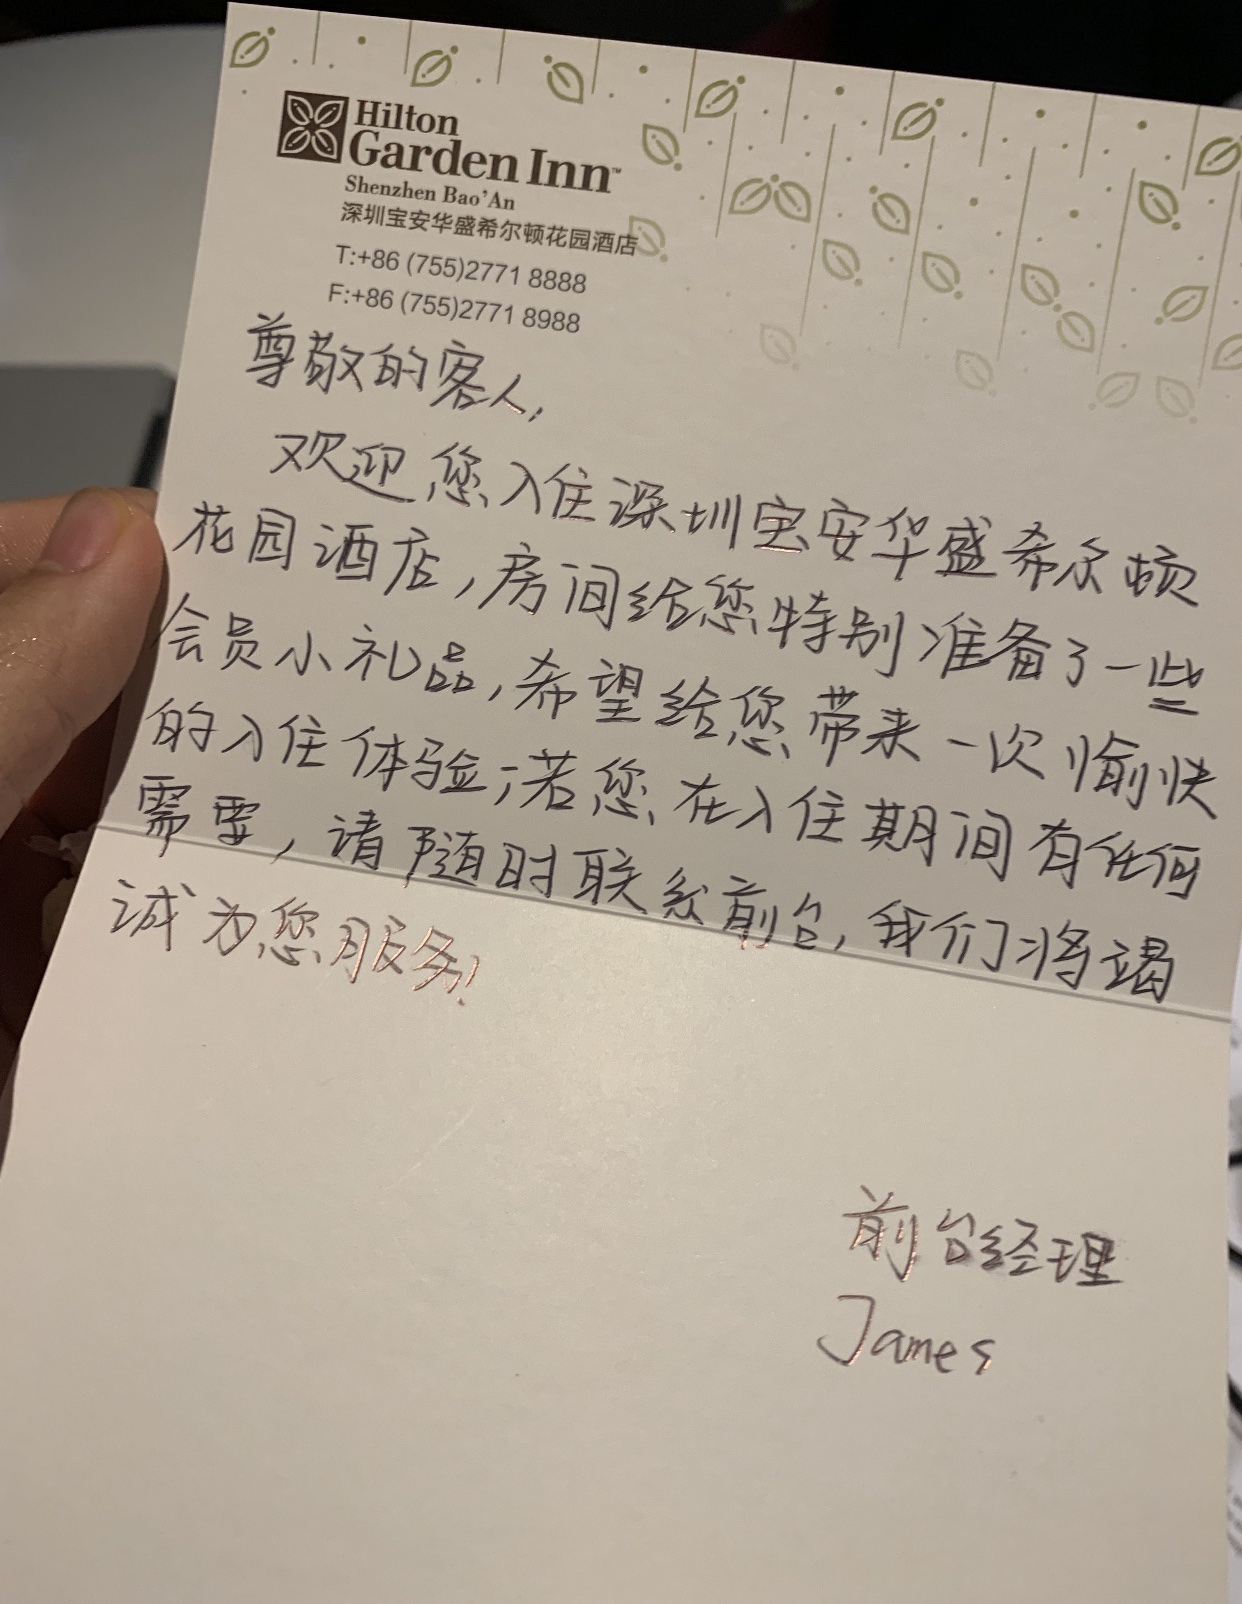 Hilton
Garden Inn™
Shenzhen Bao'An
深圳宝安华盛希尔顿花园酒店
T:+86 (755)2771 8888
F:+86 (755)2771 8988
尊敬的客人,
欢迎您入住深圳宝安华盛希尔顿
花园酒店,房间给您特别准备了一些
会员小礼品,希望给您带来一次愉快
的入住体验;若您在入住期间有任何
需要,请随时联系前台,我们将竭
诚为您服务!
前台经理
James